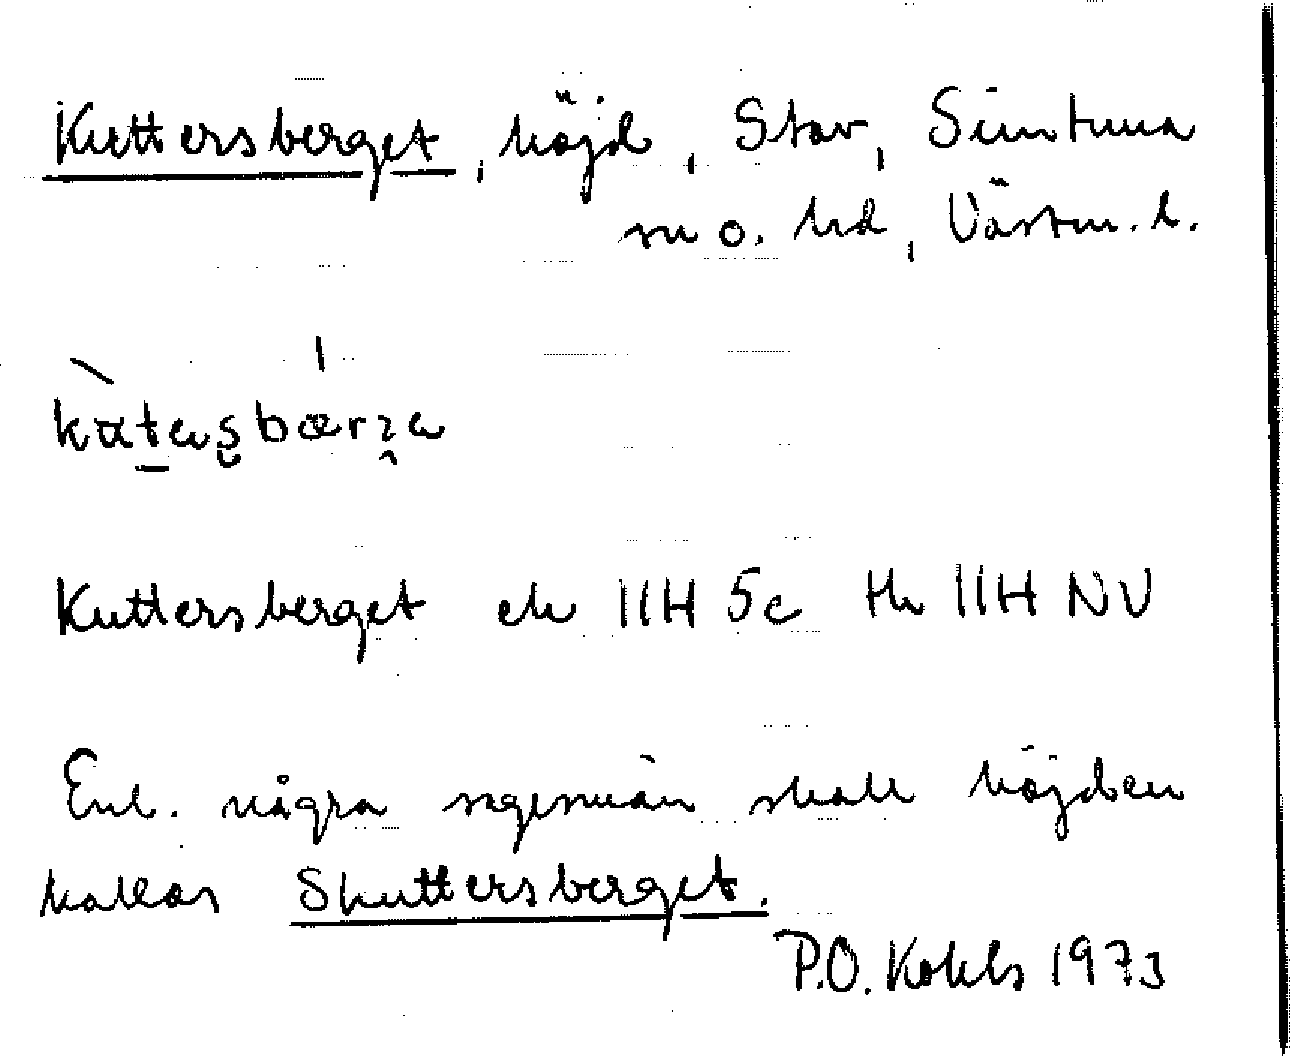 Kuttersberget, höjd, Stav, Simtuna
sn o. hd, Västm. l.
Kuttersberget ek 11H 5c tk 11H NV
Enl. några sagesmän skall höjden
kallas Skuttersberget.
P.O. Kohls 1973